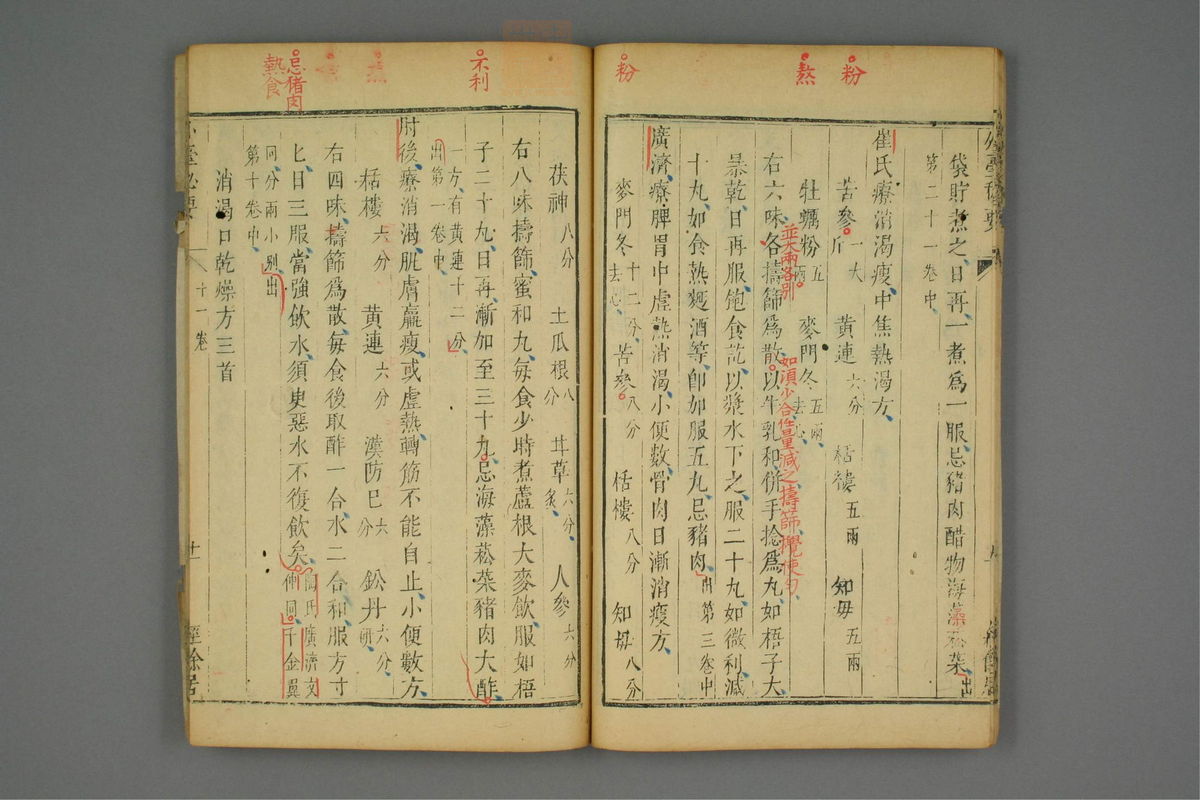 粉
熬
粉
袋貯煮之日再一煮為一服忌豬肉醋物海藻菘菜出
第二十一卷中
崔氏療消渴瘦中焦熱渴方
苦參一大斤 黃連六分 栝樓五兩 知母五兩
牡蠣粉五兩 麥門冬五兩去心
並大兩各別
如須少合任量減之擣篩攪使勻
右六味各擣篩為散以牛乳和併手捻為丸如梧子大
暴乾日再服飽食訖以漿水下之服二十丸如微利減
十丸如食熱麪酒等即加服五丸忌豬肉出第三卷中
廣濟療脾胃中虛熱消渴小便數骨肉日漸消瘦方
麥門冬十二分去心 苦參八分 栝樓八分 知母八分
不利
忌猪肉
熱食
茯神八分 土瓜根八分 甘草六分炙 人參六分
右八味擣篩蜜和丸每食少時煮蘆根大麥飲服如梧
子二十丸日再漸加至三十丸忌海藻菘菜豬肉大酢
出第一卷中
一方有黃連十二分
肘後療消渴肌膚羸瘦或虛熱轉筋不能自止小便數方
栝樓六分 黃連六分 漢防巳六分 鈆丹六分研
右四味擣篩為散每食後取酢一合水二合和服方寸
匕日三服當強飲水須臾惡水不復飲矣
同分兩小別出
第十卷中
消渴口乾燥方三首
十一卷